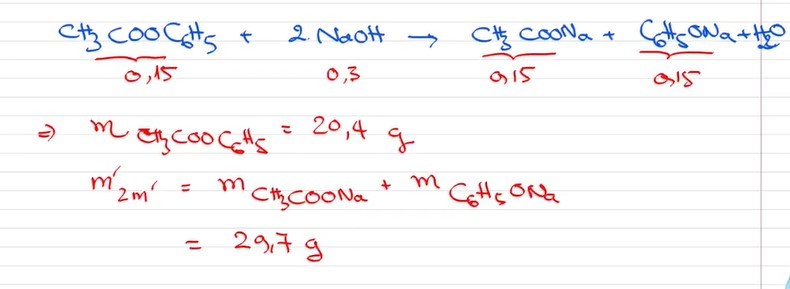 CH3COOC6H5 + 2NaOH → CH3COONa + C6H5ONa + H2O
0,15 0,3 0,15 0,15
⇒ m CH3COOC6H5 = 20,4 g
m'2m' = m CH3COONa + m C6H5ONa
= 29,7 g